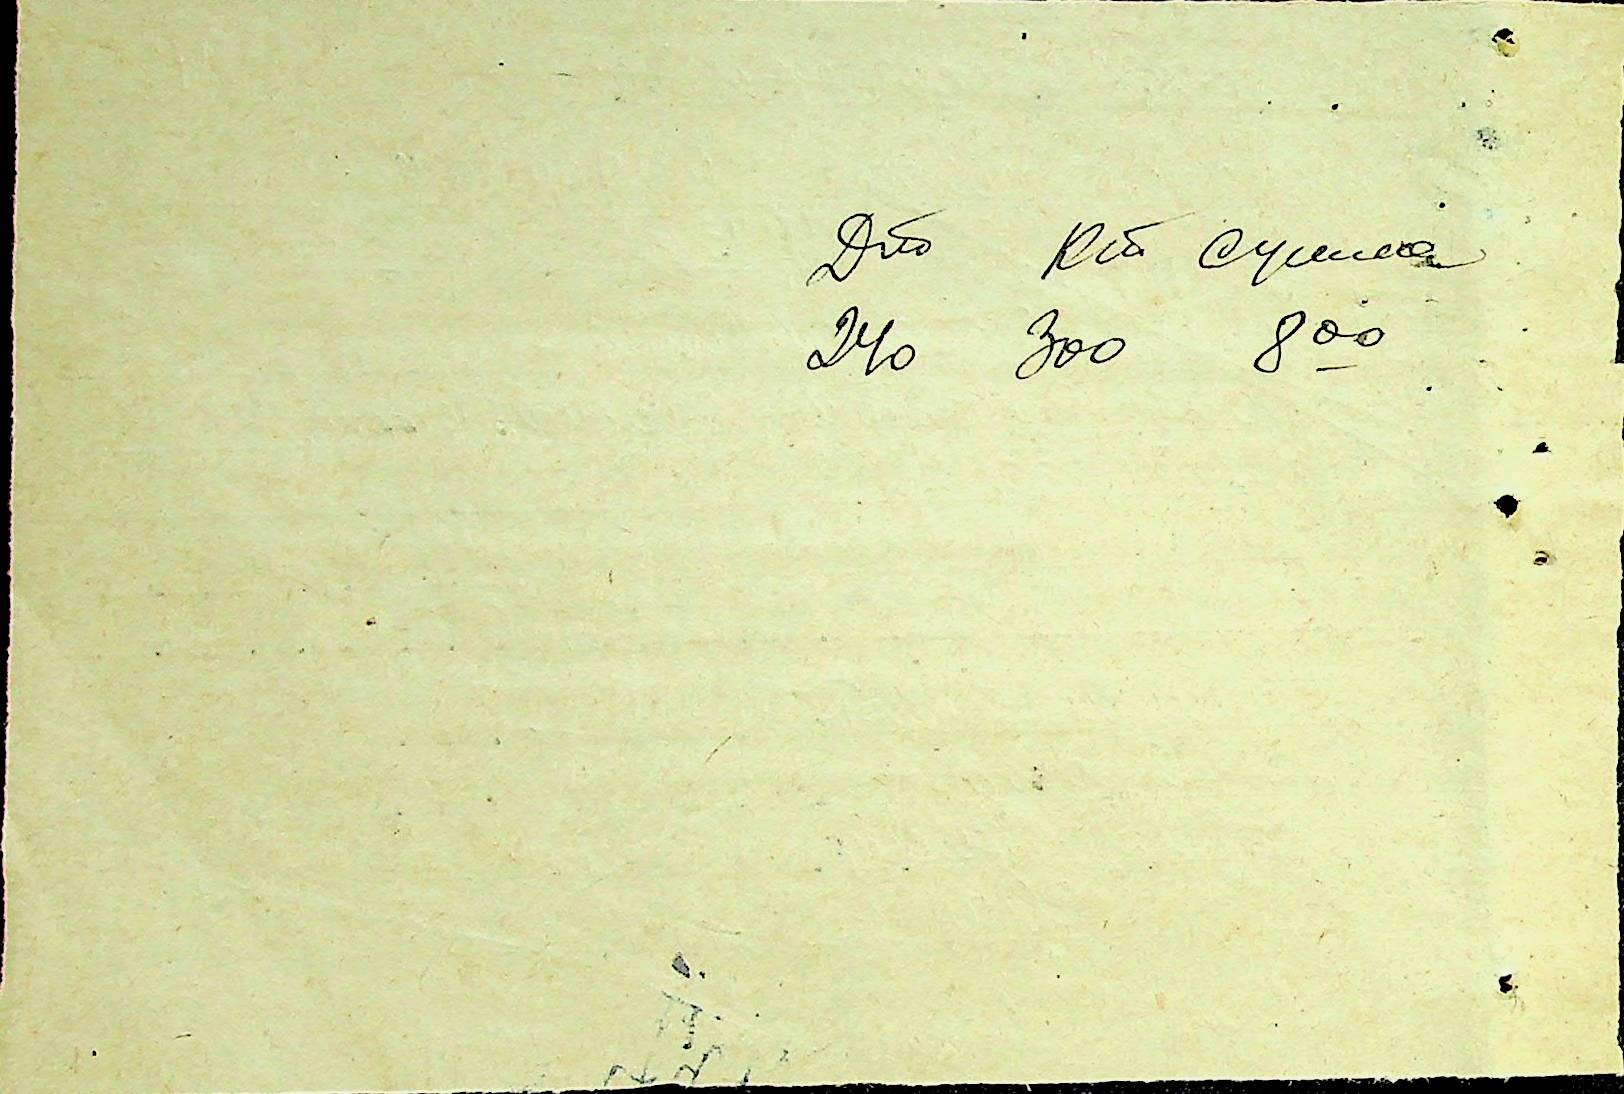 Дто Кт сумма
240 300 8 00